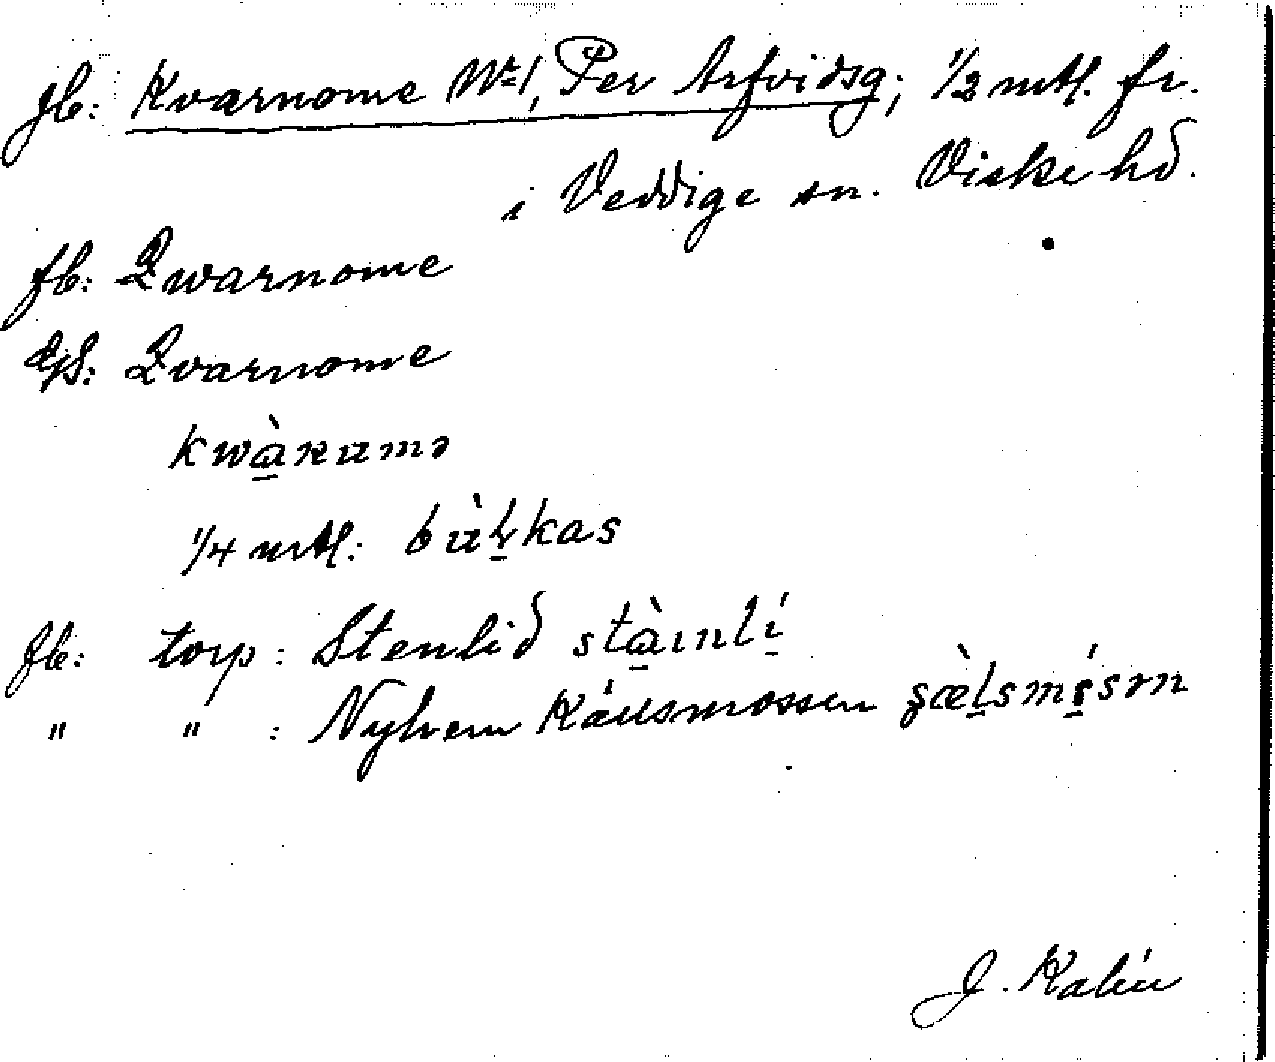 jb: Kvarnome No 1, Per Arfvidsg; 1/2 mtl. fr.
i Veddige sn. Viske hd.
fb: Qwarnome
Qvarnome
kwàʀumə
1/4 mtl: bùl̥kas
fb: torp: Stenlid stàɪnlí
" " : Nyhem Källsmossen
J. Kalén